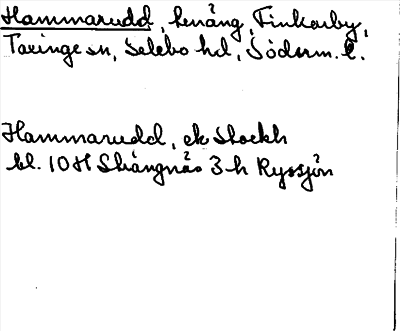 Hammarudd, hemäng, Finkarby,
Taxinge sn, Selebo hd, Söderm. l.
Hammarudd, ek Stockh
bl. 10H Strängnäs 3h Ryssjön